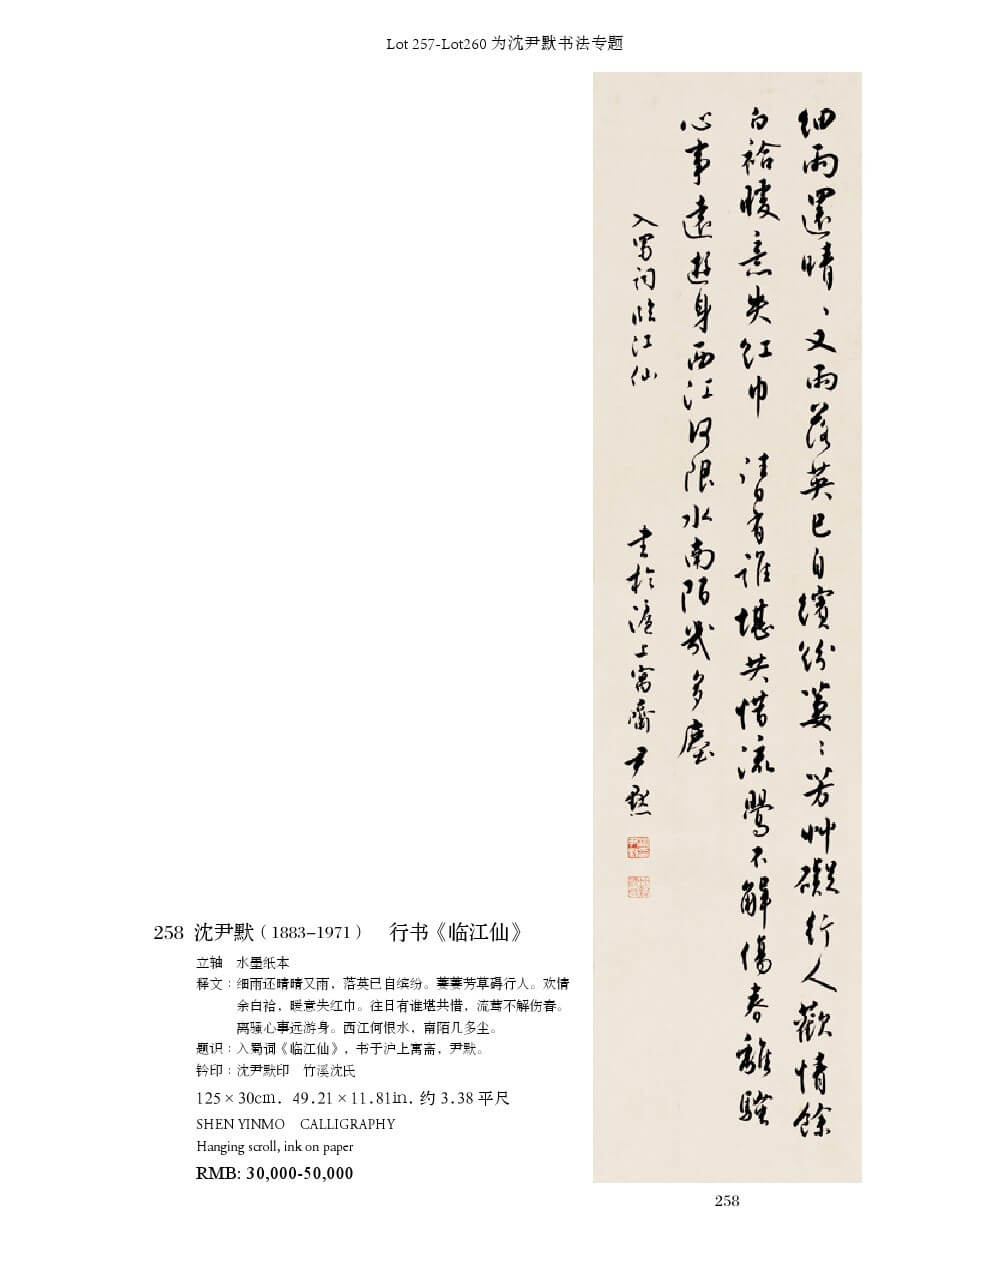 Lot 257-Lot260 为沈尹默书法专题
細雨還晴〻又雨落英已自繽紛萋〻芳艸礙行人歡情餘
白袷暖意失紅巾 往日有誰堪共惜流鶯不解傷春離騷
心事遠遊身西江何限水南陌幾多塵
入蜀詞臨江仙 書於滬上寓齋尹默
258 沈尹默（1883-1971） 行书《临江仙》
立轴 水墨纸本
释文：细雨还晴晴又雨，落英已自缤纷。萋萋芳草碍行人。欢情
余白袷，暖意失红巾。往日有谁堪共惜，流莺不解伤春。
离骚心事远游身。西江何恨水，南陌几多尘。
题识：入蜀词《临江仙》，书于沪上寓斋，尹默。
钤印：沈尹默印 竹溪沈氏
125×30cm. 49.21×11.81in. 约 3.38 平尺
SHEN YINMO CALLIGRAPHY
Hanging scroll, ink on paper
RMB: 30,000-50,000
258